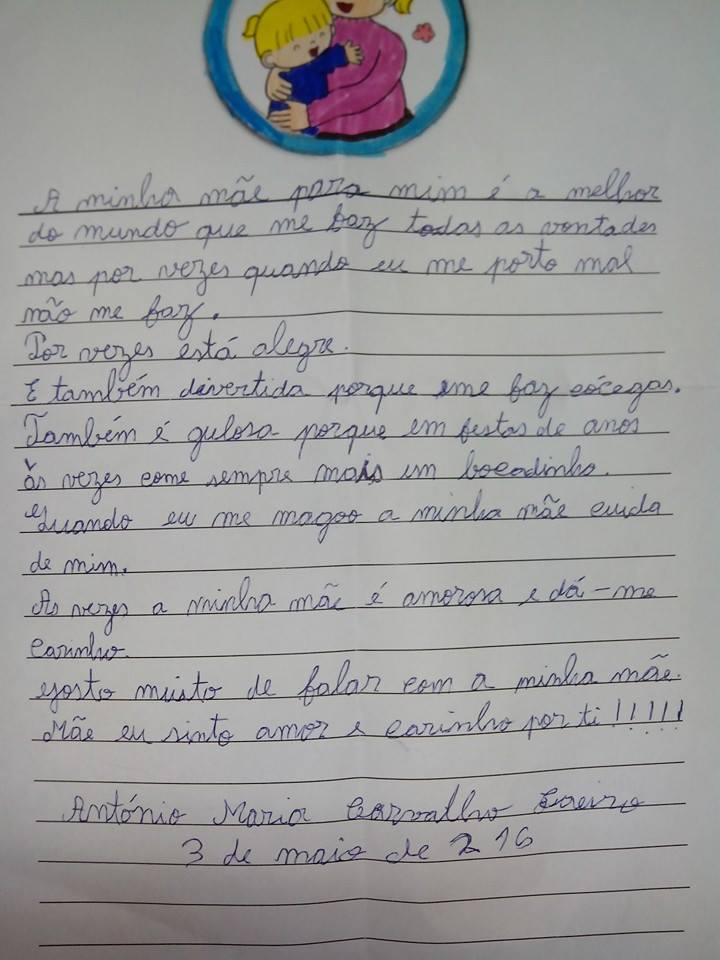 A minha mãe para mim é a melhor
do mundo que me faz todas as vontades
mas por vezes quando eu me porto mal
não me faz.
Por vezes está alegre.
E também divertida porque me faz cócegas.
Também é gulosa porque em festas de anos
às vezes come sempre mais um bocadinho.
Quando eu me magoo a minha mãe cuida
de mim.
As vezes a minha mãe é amorosa e dá-me
carinho.
Gosto muito de falar com a minha mãe.
Mãe eu sinto amor e carinho por ti !!!!!
António Maria Carvalho
3 de maio de 2 16